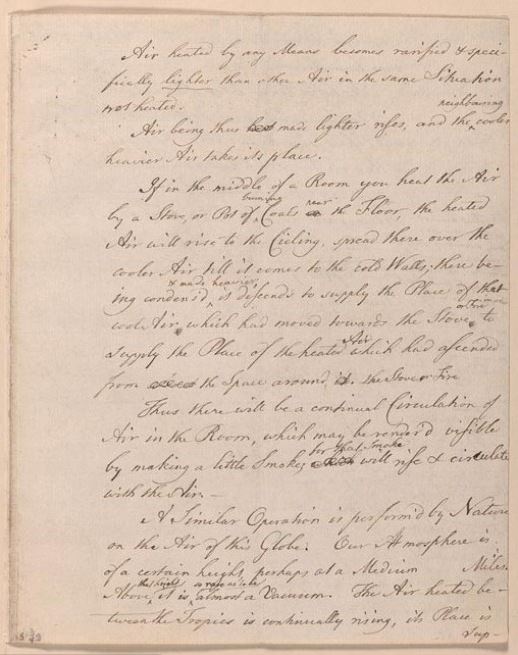 Air heated by any Means becomes rarified & speci-
fically lighter than other Air in the same Situation
not heated.
neighbouring
Air being thus made lighter rises, and the cooler
heavier Air takes its place.
If in the middle of a Room you heat the Air
burning near
by a Stove, or Pot of Coals the Floor, the heated
Air will rise to the Cieling, spread there over the
cooler Air till it comes to the cold Walls; there be-
& made heavier
ing condens'd, it descends to supply the Place of that
or Fire
cool Air which had moved towards the Stove to
Air
supply the Place of the heated which had ascended
from the Space around the Stove or Fire
Thus there will be a continual Circulation of
Air in the Room, which may be render'd visible
for that Smoke
by making a little Smoke; will rise & circulate
with the Air. —
A Similar Operation is perform'd by Nature
on the Air of this Globe. Our Atmosphere is
of a certain height, perhaps at a Medium Miles.
that height so rare as to be
Above it is almost a Vacuum. The Air heated be-
tween the Tropics is continually rising, its Place is
Sup-